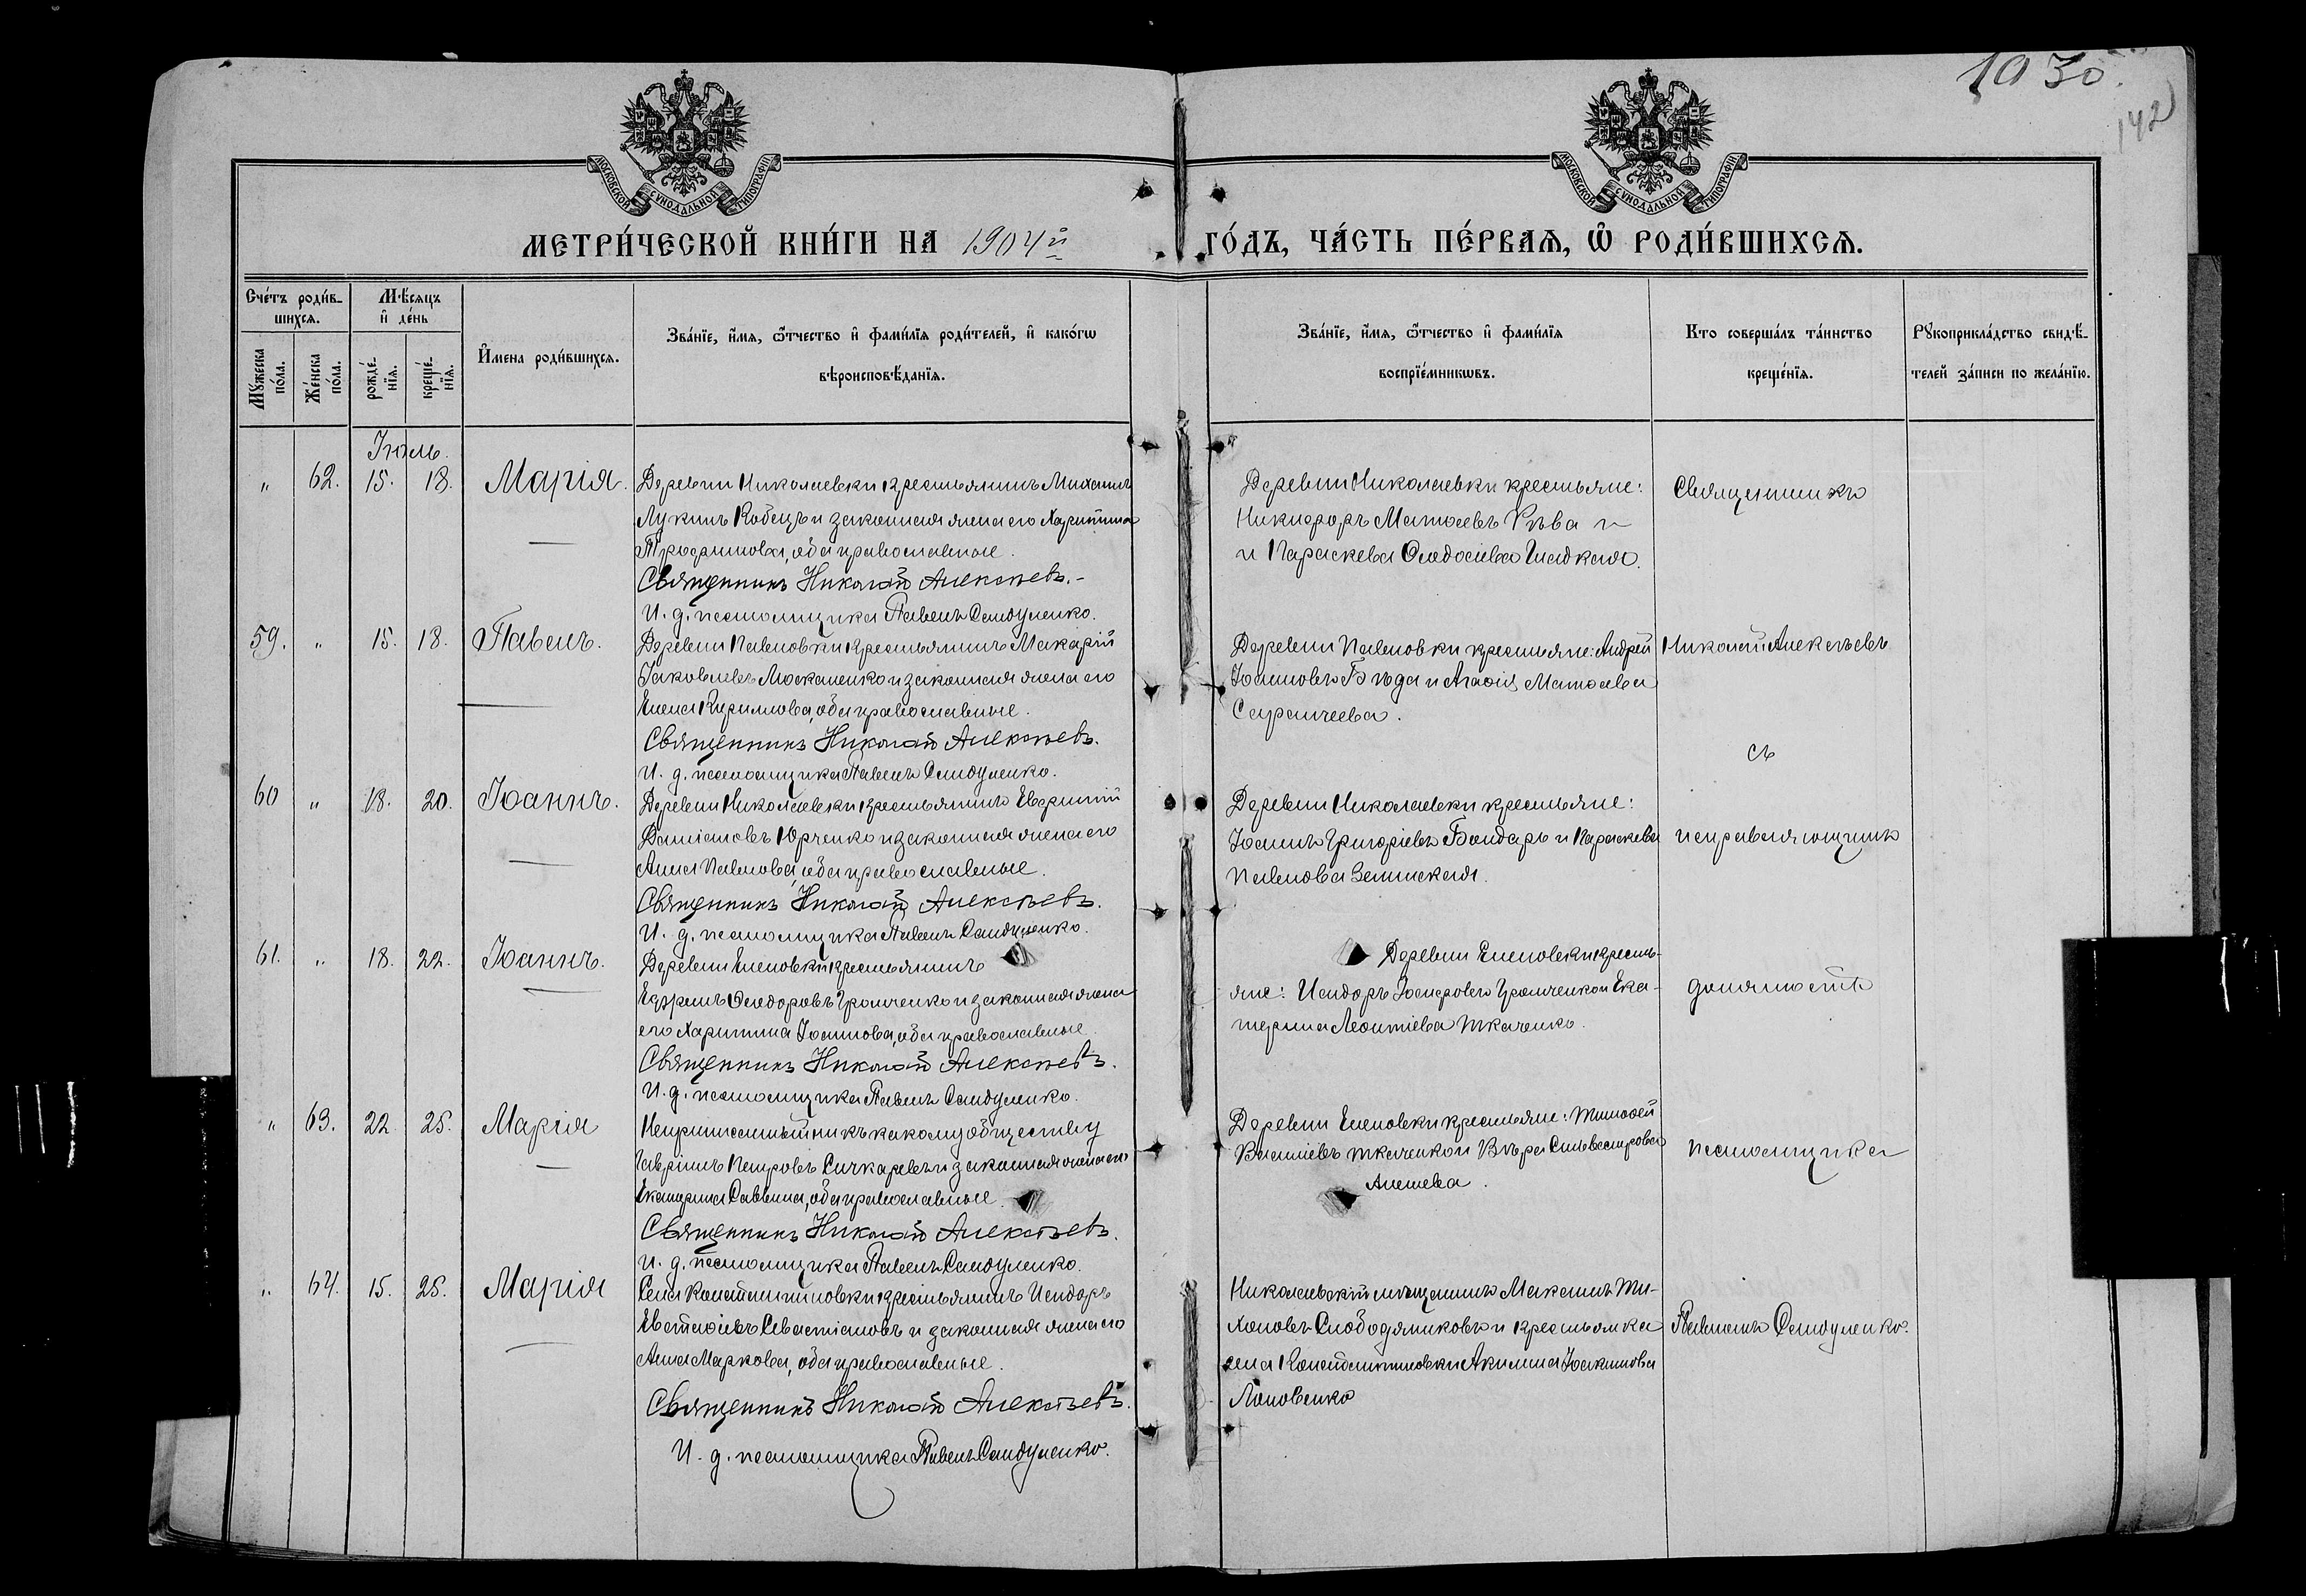 1030.
142
МОСКОВСКОЙ СѴНОДАЛЬНОЙ ТИПОГРАФІИ
МОСКОВСКОЙ СѴНОДАЛЬНОЙ ТИПОГРАФІИ
МЕТРИ́ЧЕСКОЙ КНИ́ГИ НА 1904й ГО́ДЪ, ЧА́СТЬ ПЕ́РВАѦ, Ѡ҆ РОДИ́ВШИХСѦ.
Сче́тъ роди́в-
шихсѧ.
Мꙋ́жеска по́ла.
Же́нска по́ла.
Мѣ́сѧцъ
и҆ де́нь
рожде́-нїѧ.
креще́-нїѧ.
И҆мена роди́вшихсѧ.
Зва́нїе, и҆́мѧ, ѻ҆́тчество и҆ фами́лїѧ роди́телей, и҆ како́гѡ
вѣроисповѣ́данїѧ.
Зва́нїе, и҆́мѧ, ѻ҆́тчество и҆ фами́лїѧ
воспрїе́мникѡвъ.
Кто соверша́лъ та́инство
креще́нїѧ.
Рꙋкоприкла́дство свидѣ́-
телей за́писи по жела́нїю.
Іюль.
" 62. 15. 18. Марія.
Деревни Николаевки крестьянинъ Михаилъ
Лукинъ Кобецъ и законная жена его Харитина
Трофимова, оба православные.
Священникъ Николай Алексѣевъ.-
И. д. псаломщика Павелъ Сандуленко.
Деревни Николаевки крестьяне:
Никифоръ Матѳеевъ Рѣва и
и Параскева Ѳеодосіева Гладкая.
Священникъ
59. " 15. 18. Павелъ.
Деревни Павловки крестьянинъ Макарій
Іаковлевъ Москаленко и законная жена его
Елена Кириллова, оба православные.
Священникъ Николай Алексѣевъ.
И. д. псаломщика Павелъ Сандуленко.
Деревни Павловки крестьяне: Андрей
Іоанновъ Бѣда и Агаѳія Матѳеева
Саранчеева.
Николай Алексѣевъ
съ
60 " 18. 20. Іоаннъ.
Деревни Николаевки крестьянинъ Евфимій
Даміановъ Юрченко и законная жена его
Анна Павлова, оба православные.
Священникъ Николай Алексѣевъ.
И. д. псаломщика Павелъ Сандуленко.
Деревни Николаевки крестьяне:
Іоаннъ Григоріевъ Бондарь и Параскева
Павлова Зелинская.
исправляющимъ
61. " 18. 22. Іоаннъ.
Деревни Еленовки крестьянинъ
Ефремъ Ѳеодоровъ Громченко и законная жена
его Харитина Іоаннова, оба православные.
Священникъ Николай Алексѣевъ.
И. д. псаломщика Павелъ Сандуленко.
Деревни Еленовки кресть-
яне: Исидоръ Іосифовъ Громченко и Ека-
терина Леонтіева Ткаченко.
должность
" 63. 22. 25. Марія
Неприписанный ни къ какому обществу
Гавріилъ Петровъ Сичкаревъ и законная жена его
Екатерина Саввина, оба православные.
Священникъ Николай Алексѣевъ.
И. д. псаломщика Павелъ Сандуленко.
Деревни Еленовки крестьяне: Тимоѳей
Василіевъ Ткаченко и Вѣра Сильвестрова
Алешева.
псаломщика
" 64. 15. 25. Марія
Села Константиновки крестьянинъ Исидоръ
Евстаѳіевъ Севастіановъ и законная жена его
Анна Маркова, оба православные.
Священникъ Николай Алексѣевъ.
И. д. псаломщика Павелъ Сандуленко.
Николаевскій мѣщанинъ Максимъ Ти-
хоновъ Слободяниковъ и крестьянка
села Константиновки Акилина Іоакимова
Лоповенко
Павломъ Сандуленко.